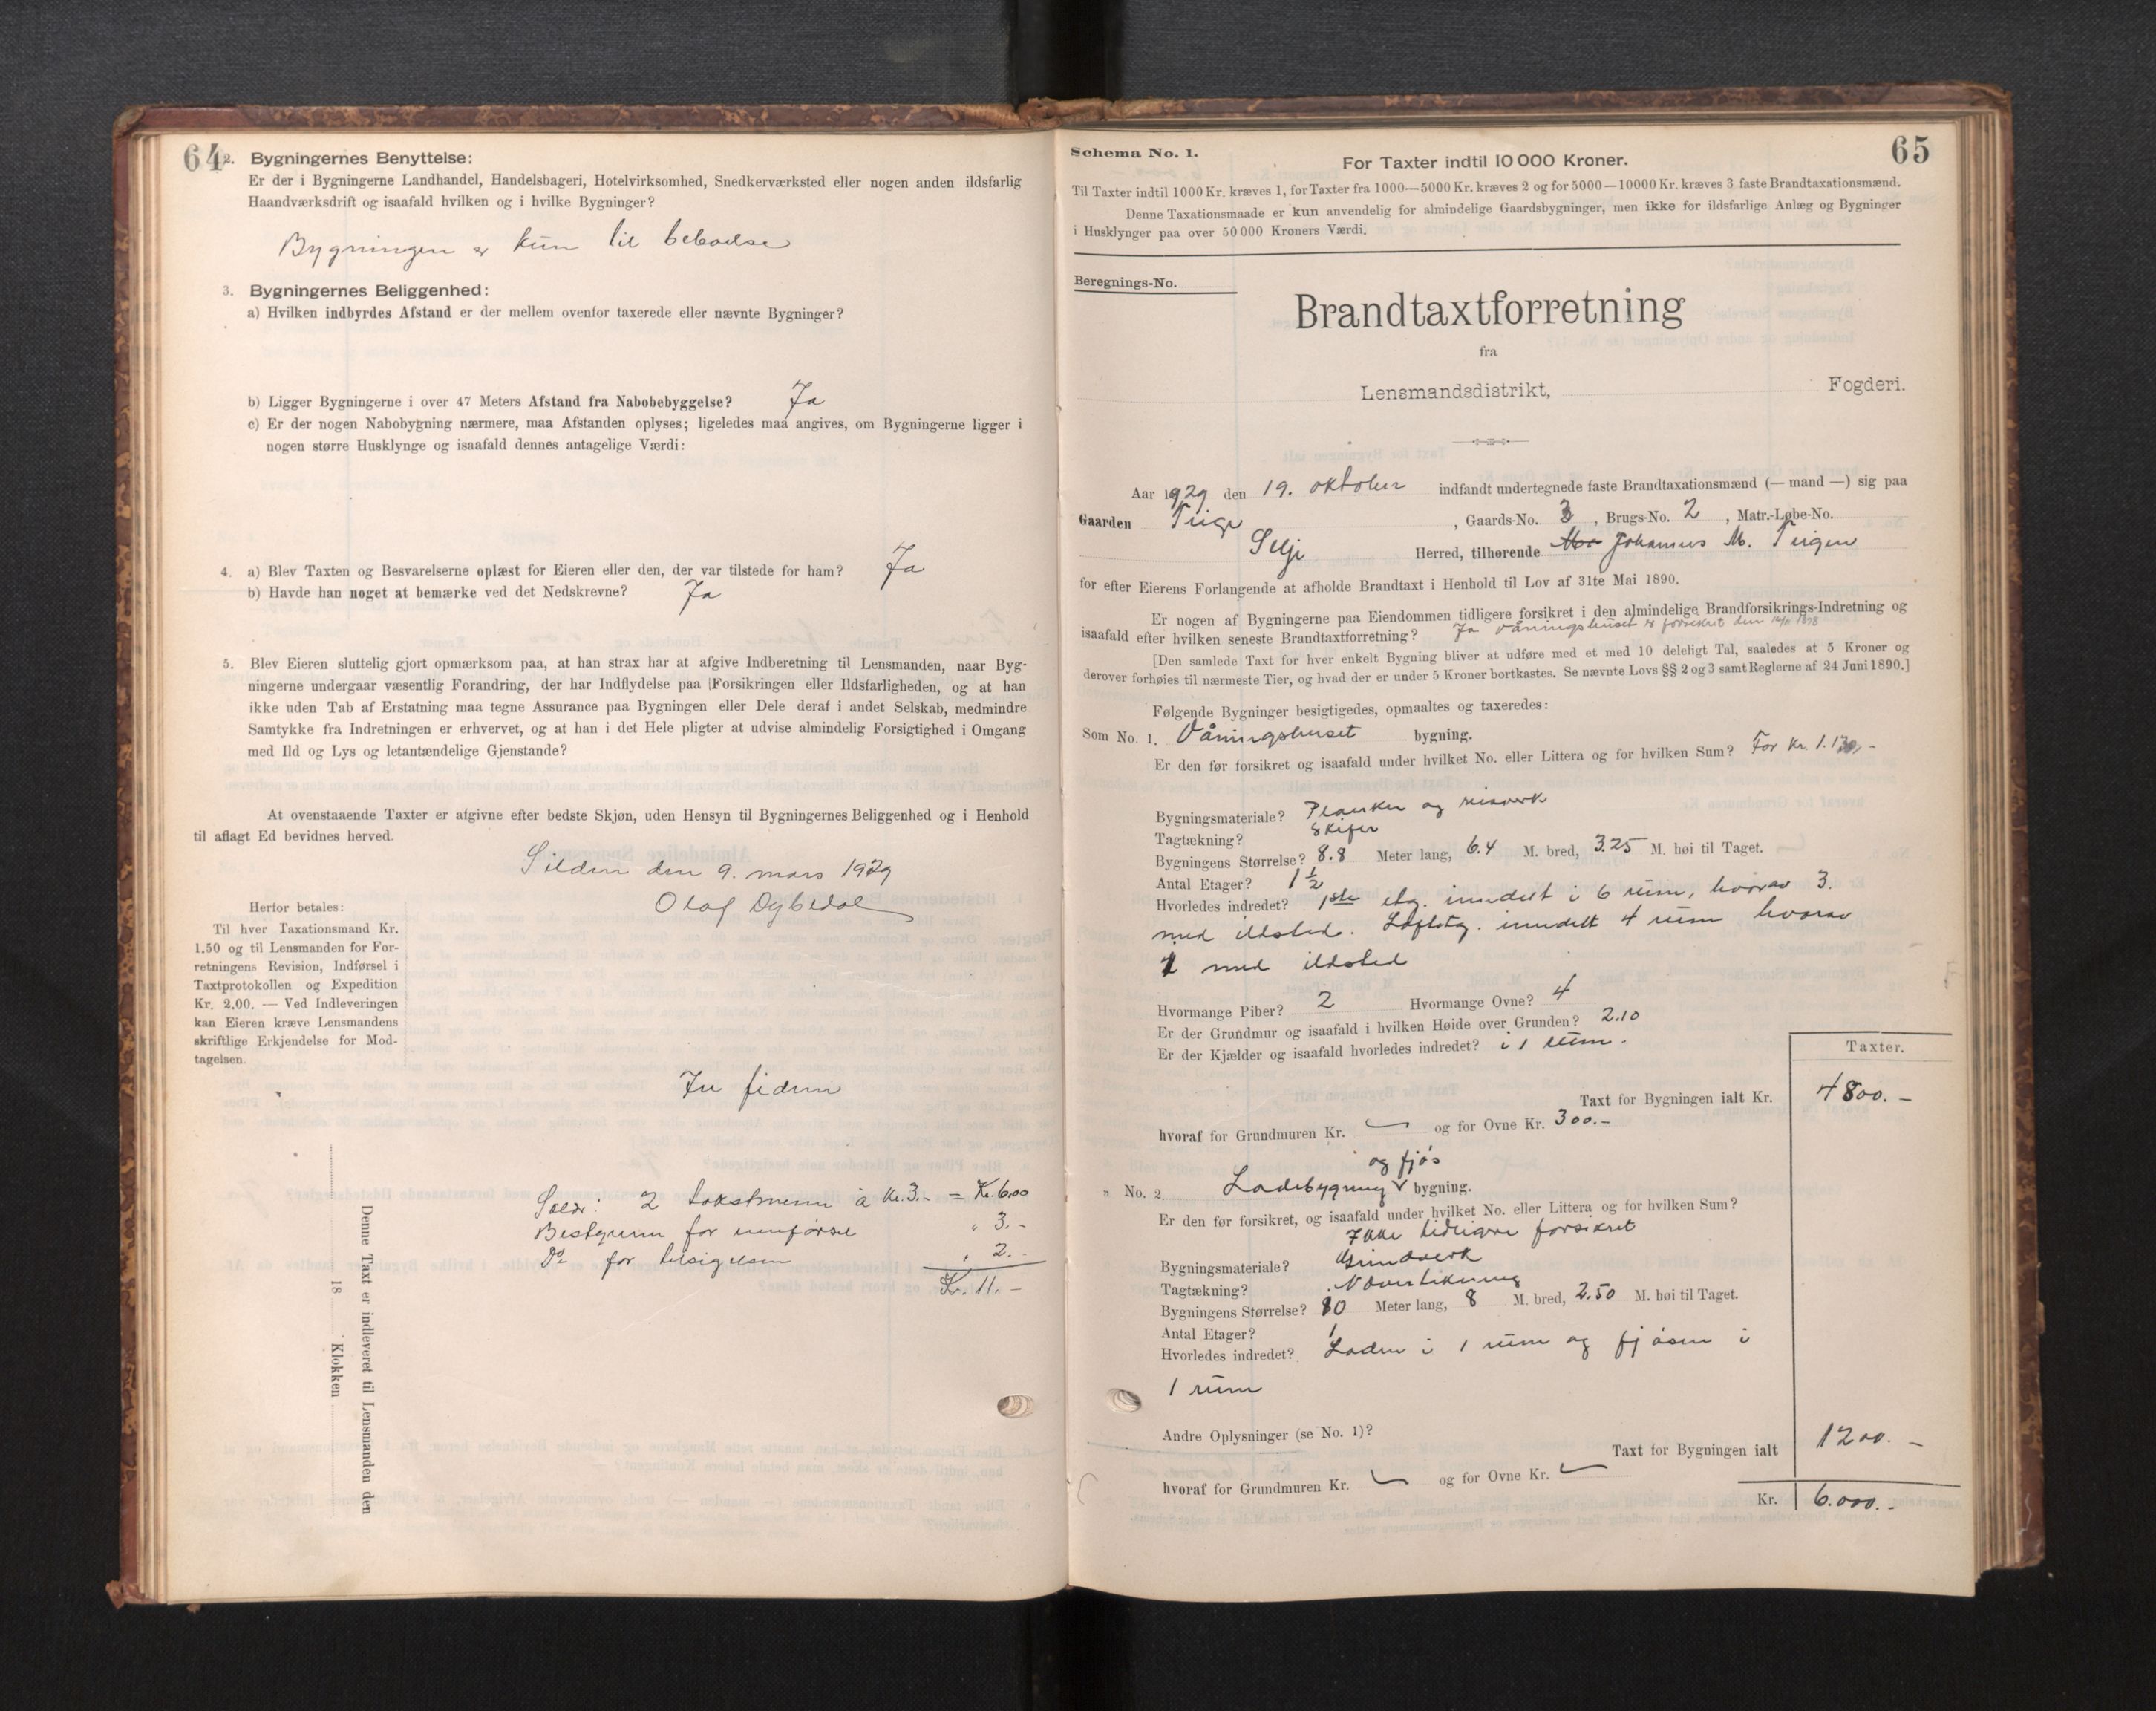 64
2. Bygningernes Benyttelse:
Er der i Bygningerne Landhandel, Handelsbageri, Hotelvirksomhed, Snedkerværksted eller nogen anden ildsfarlig
Haandværksdrift og isaafald hvilken og i hvilke Bygninger?
Bygningen er kun til beboelse
3. Bygningernes Beliggenhed:
a) Hvilken indbyrdes Afstand er der mellem ovenfor taxerede eller nævnte Bygninger?
b) Ligger Bygningerne i over 47 Meters Afstand fra Nabobebyggelse? Ja
c) Er der nogen Nabobygning nærmere, maa Afstanden oplyses; ligeledes maa angives, om Bygningerne ligger i
nogen større Husklynge og isaafald dennes antagelige Værdi:
4. a) Blev Taxten og Besvarelserne oplæst for Eieren eller den, der var tilstede for ham? Ja
b) Havde han noget at bemærke ved det Nedskrevne? Ja
5. Blev Eieren sluttelig gjort opmærksom paa, at han strax har at afgive Indberetning til Lensmanden, naar Byg-
ningerne undergaar væsentlig Forandring, der har Indflydelse paa Forsikringen eller Ildsfarligheden, og at han
ikke uden Tab af Erstatning maa tegne Assurance paa Bygningen eller Dele deraf i andet Selskab, medmindre
Samtykke fra Indretningen er erhvervet, og at han i det Hele pligter at udvise almindelig Forsigtighed i Omgang
med Ild og Lys og letantændelige Gjenstande?
At ovenstaaende Taxter er afgivne efter bedste Skjøn, uden Hensyn til Bygningernes Beliggenhed og i Henhold
til aflagt Ed bevidnes herved.
Silden den 9. mars 1929
Olaf Dybedal
Herfor betales:
Til hver Taxationsmand Kr.
1.50 og til Lensmanden for For-
retningens Revision, Indførsel i
Taxtprotokollen og Expedition
Kr. 2.00. — Ved Indleveringen
kan Eieren kræve Lensmandens
skriftlige Erkjendelse for Mod-
tagelsen.
In fidem
2 takstmenn à Kr. 3.- = Kr. 6.00
for innførsel " 3.-
Do for tilsigelsen " 2.-
Kr. 11.-
Denne Taxt er indleveret til Lensmanden den
18 Klokken
65
Schema No. 1.
For Taxter indtil 10 000 Kroner.
Til Taxter indtil 1000 Kr. kræves 1, for Taxter fra 1000—5000 Kr. kræves 2 og for 5000—10000 Kr. kræves 3 faste Brandtaxationsmænd.
Denne Taxationsmaade er kun anvendelig for almindelige Gaardsbygninger, men ikke for ildsfarlige Anlæg og Bygninger
i Husklynger paa over 50 000 Kroners Værdi.
Beregnings-No.
Brandtaxtforretning
fra
Lensmandsdistrikt, Fogderi.
Aar 1929 den 19. oktober indfandt undertegnede faste Brandtaxationsmænd (— mand —) sig paa
Gaarden Teige, Gaards-No. 3, Brugs-No. 2, Matr.-Løbe-No.
Selje Herred, tilhørende Johannes M. Teigen
for efter Eierens Forlangende at afholde Brandtaxt i Henhold til Lov af 31te Mai 1890.
Er nogen af Bygningerne paa Eiendommen tidligere forsikret i den almindelige Brandforsikrings-Indretning og
isaafald efter hvilken seneste Brandtaxtforretning? Ja våningshuset er forsikret den 1878
[Den samlede Taxt for hver enkelt Bygning bliver at udføre med et med 10 deleligt Tal, saaledes at 5 Kroner og
derover forhøies til nærmeste Tier, og hvad der er under 5 Kroner bortkastes. Se nævnte Lovs §§ 2 og 3 samt Reglerne af 24 Juni 1890.]
Følgende Bygninger besigtigedes, opmaaltes og taxeredes:
Som No. 1. Våningshuset bygning.
Er den før forsikret og isaafald under hvilket No. eller Littera og for hvilken Sum? For Kr. 1.130,-
Bygningsmateriale? Planker og reisverk
Tagtækning? Skifer
Bygningens Størrelse? 8.8 Meter lang, 6.4 M. bred, 3.25 M. høi til Taget.
Antal Etager? 1 1/2
Hvorledes indredet? 1ste etg. inndelt i 6 rum, hvorav 3.
med ildsted. Loftetg. inndelt 4 rum hvorav
1 med ildsted
Hvormange Piber? 2 Hvormange Ovne? 4
Er der Grundmur og isaafald i hvilken Høide over Grunden? 2.10
Er der Kjælder og isaafald hvorledes indredet? i 1 rum.
Taxter.
Taxt for Bygningen ialt Kr. 4800.-
hvoraf for Grundmuren Kr. og for Ovne Kr. 300.-
" No. 2 Ladebygning og fjøs bygning.
Er den før forsikret, og isaafald under hvilket No. eller Littera og for hvilken Sum?
Ikke tidligere forsikret
Bygningsmateriale? Grindverk
Tagtækning? Nævertekning
Bygningens Størrelse? 10 Meter lang, 8 M. bred, 2.50 M. høi til Taget.
Antal Etager? 1
Hvorledes indredet? Laden i 1 rum og fjøsen i
1 rum
Andre Oplysninger (se No. 1)?
Taxt for Bygningen ialt 1200.-
hvoraf for Grundmuren Kr. og for Ovne Kr.
Kr. 6.000.-